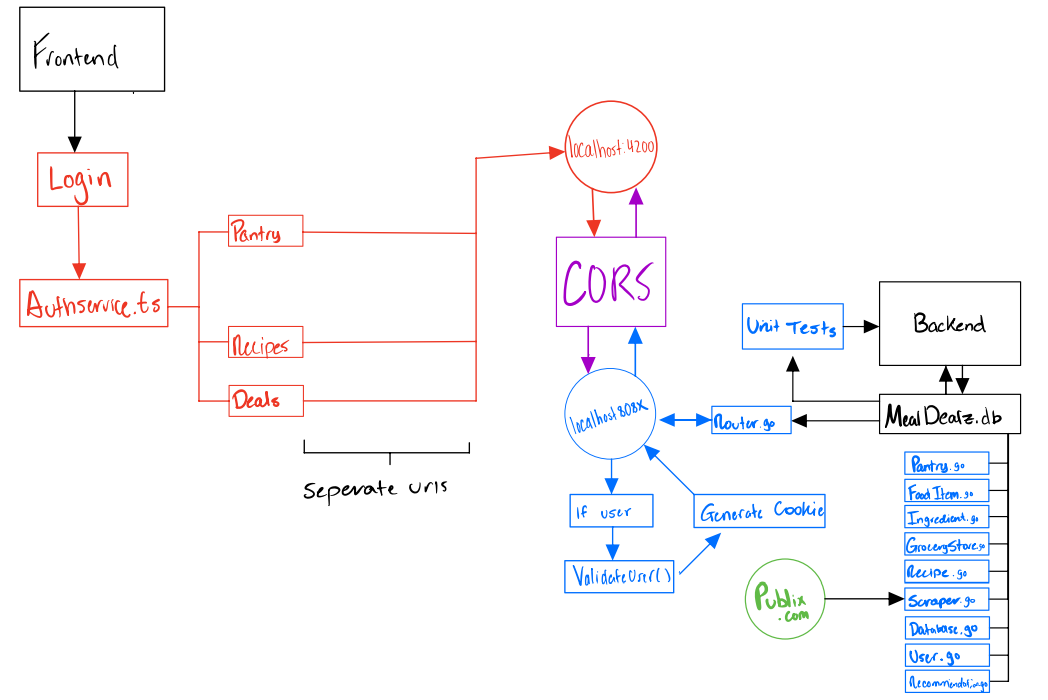 Frontend
Login
Authservice.ts
Pantry
Recipes
Deals
Seperate urls
localhost:4200
CORS
localhost808X
If user
ValidateUser()
Generate Cookie
Router.go
Unit Tests
Backend
MealDealz.db
Pantry.go
FoodItem.go
Ingredient.go
GroceryStore.go
Recipe.go
Scraper.go
Database.go
User.go
Recommendation.go
Publix
.com